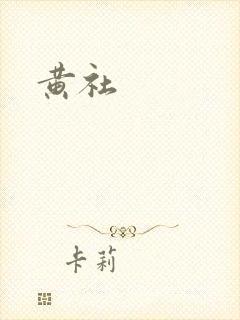 黄社
卡莉